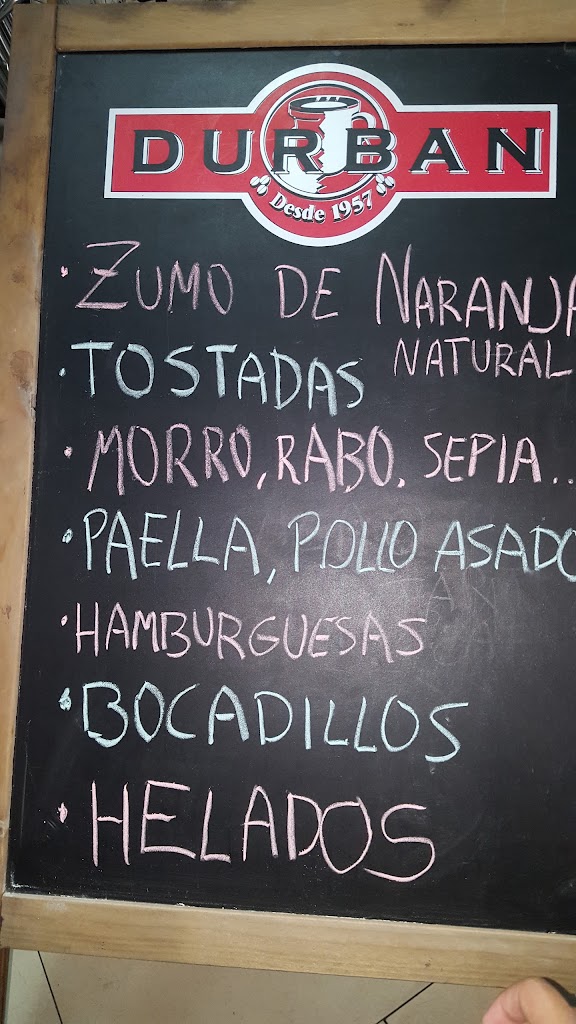 DURBAN
Desde 1957
· ZUMO DE NARANJA
NATURAL
· TOSTADAS
· MORRO, RABO, SEPIA...
· PAELLA, POLLO ASADO
· HAMBURGUESAS
· BOCADILLOS
· HELADOS